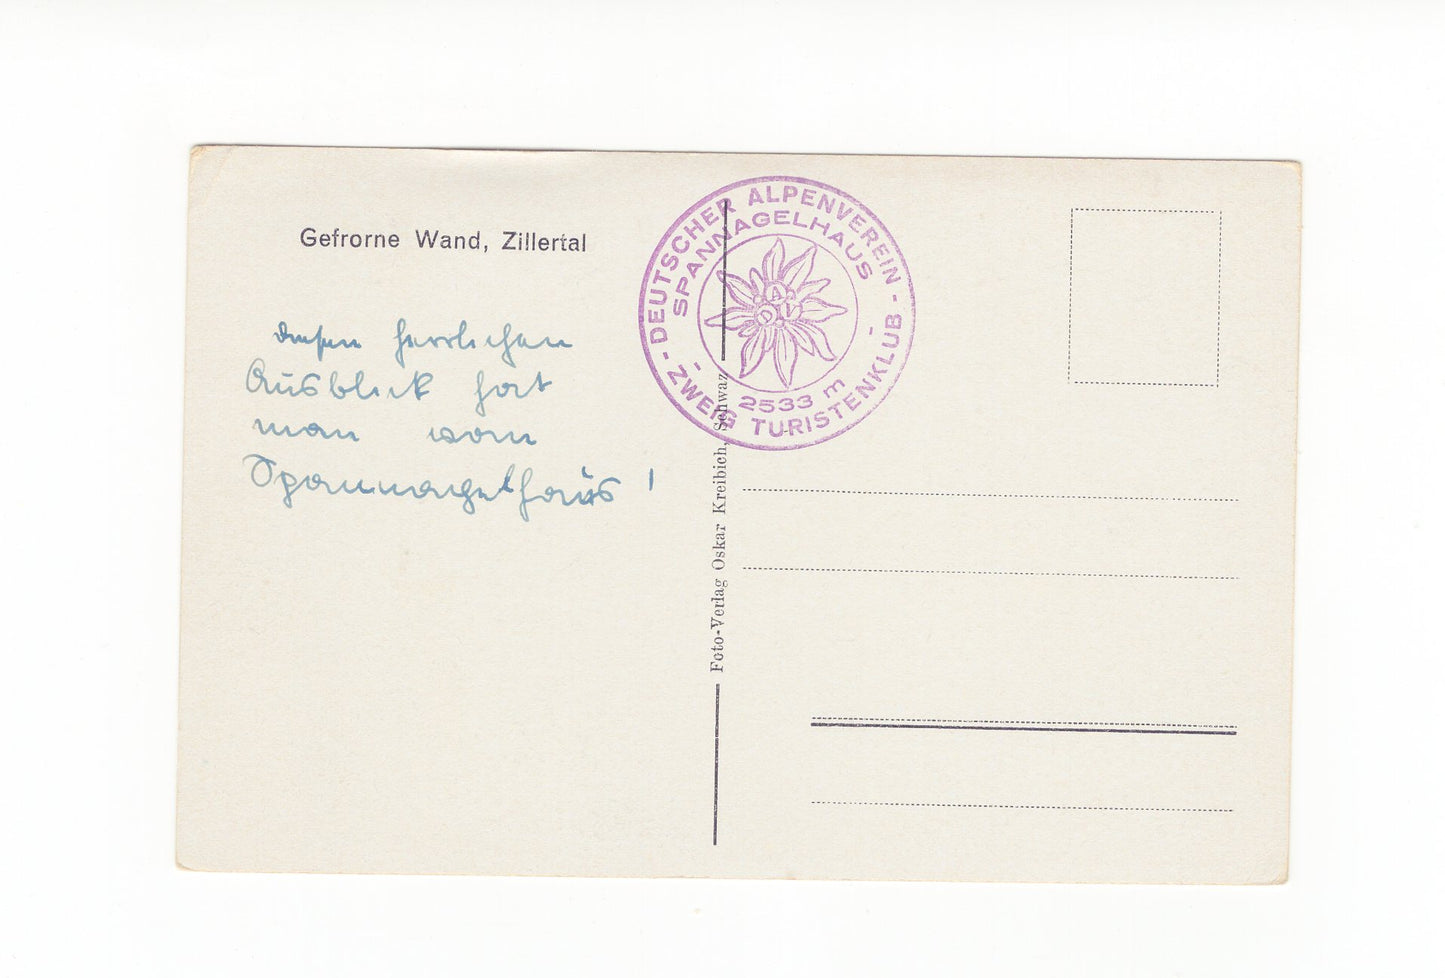 Gefrorne Wand, Zillertal
diesen herrlichen
Ausblick hat
man vom
Spannagelhaus !
DEUTSCHER ALPENVEREIN
SPANNAGELHAUS
DAV
2533 m
- ZWEIG TURISTENKLUB -
Foto-Verlag Oskar Kreibich, Schwaz